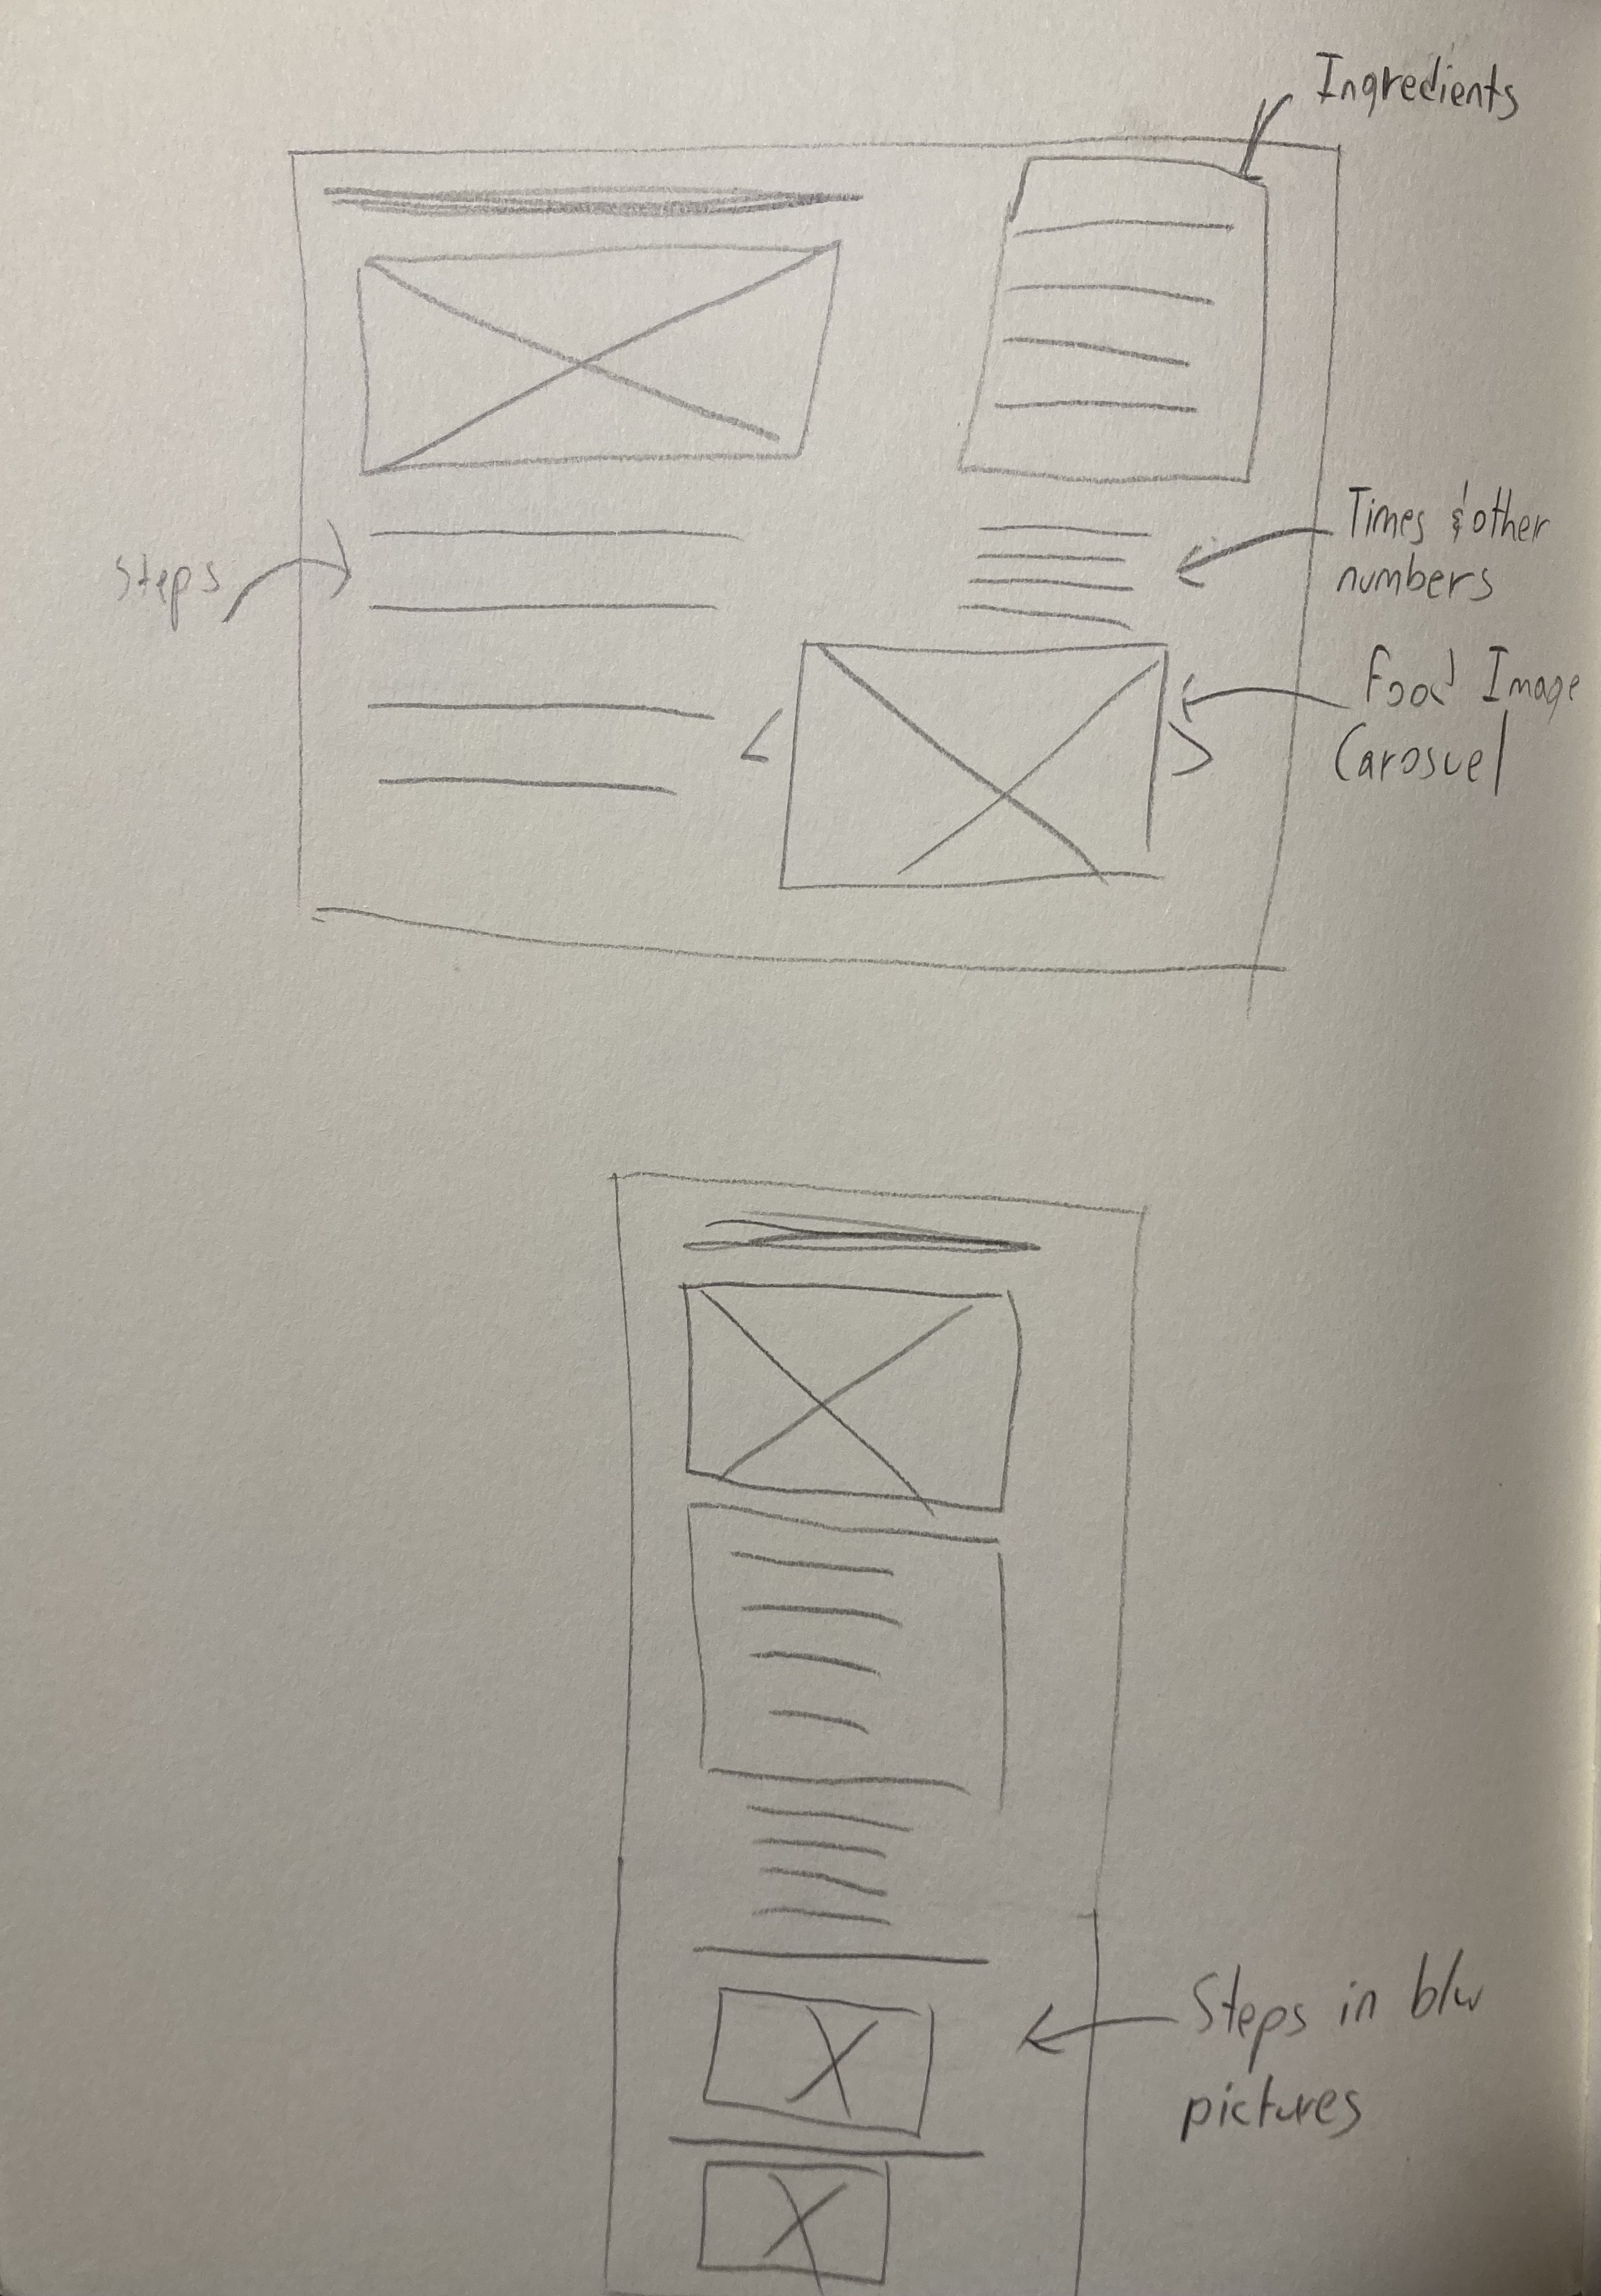 Ingredients
Steps
Times & other
numbers
Food Image
Carosuel
Steps in b/w
pictures